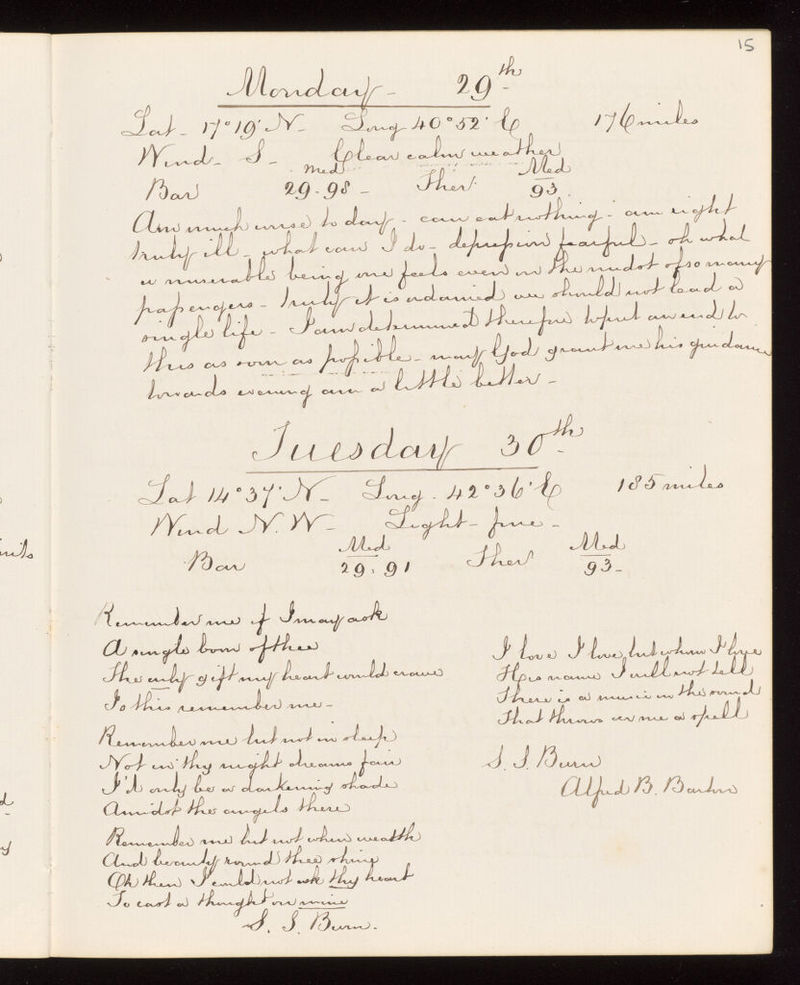 15
Monday - 29th
Lat - 17°19' N - Long 40°52' E 176 miles
Wind - S - Clear calm weather
Bar Med 29.98 - Ther Med 93
Am much worse to day - can eat nothing - am right
truly ill - what can I do - depression fearful - oh what
a miserable being one feels even in the midst of so many
passengers - truly it is ordained we should not lead a
single life - I am determined therefore to put an end to
this as soon as possible - may God grant me his guidance
towards evening am a little better -
Tuesday 30th -
Lat 14°37' N - Long. 42°36' E 185 miles
Wind N. W - Light - fine -
Bar Med 29.91 Ther Med 93 -
Remember me if I may ask
A single boon of thee
The only gift my heart would crave
Is this remember me -
Remember me but not in sleep
Not in thy night dreams fair
I'd only be a darkening shade
Amidst the angels there
Remember me but not when wealth
And beauty round thee shine
Oh then I could not ask thy heart
To cast a thought on mine
S. S. Burn.
I love I love but whom I love
His name I will not tell
There is a music in the sound
That throws on me a spell
S. S. Burn
Alfred B. Barton